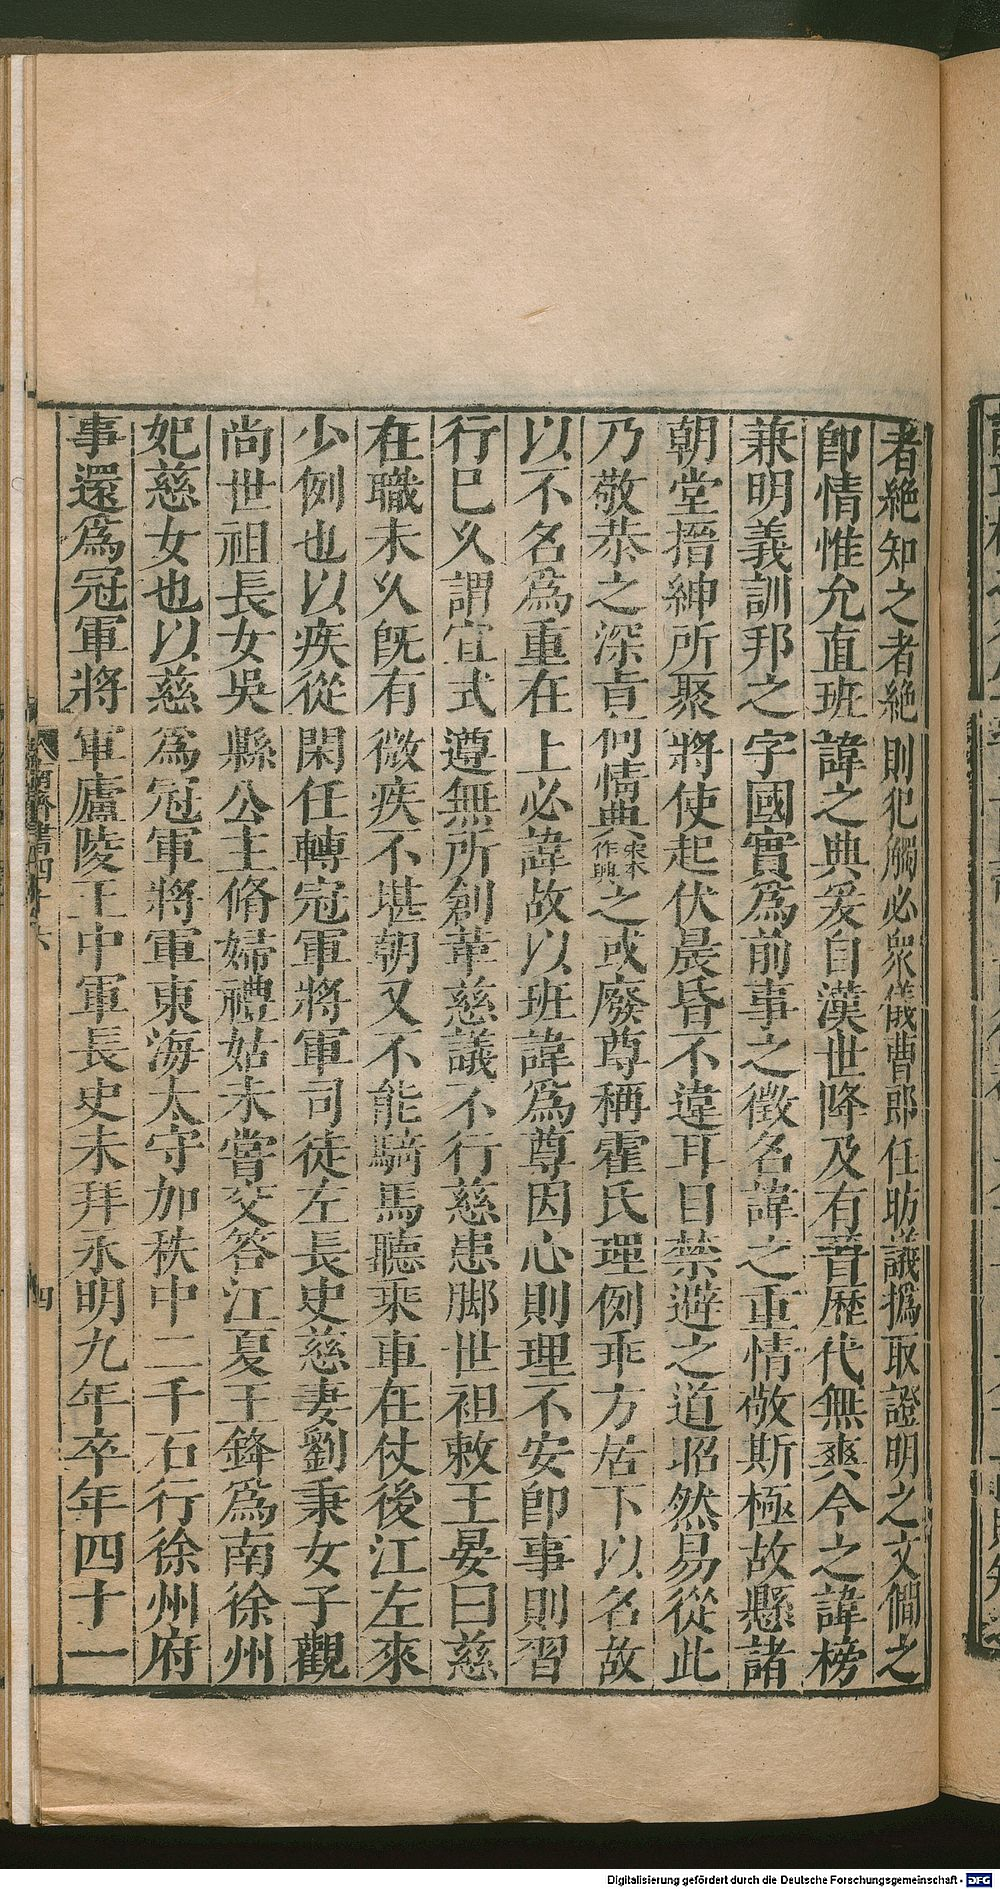 者絶知之者絶則犯觸必衆儀曹郎任昉議撝取證明之文僩之
卽情惟允直班諱之典爰自漢世降及有晉歷代無爽今之諱榜
兼明義訓邦之字國實爲前事之徵名諱之重情敬斯極故懸諸
朝堂搢紳所聚將使起伏晨昏不違耳目禁避之道昭然易從此
乃敬恭之深㫖何情典宋本作興之或廢尊稱霍氏理例乖方居下以名故
以不名爲重在上必諱故以班諱爲尊因心則理不安卽事則習
行巳久謂宜式遵無所創革慈議不行慈患脚世祖敕王晏曰慈
在職未久旣有微疾不堪朝又不能騎馬聽乘車在仗後江左來
少例也以疾從閑任轉冠軍將軍司徒左長史慈妻劉秉女子觀
尚世祖長女吳縣公主脩婦禮姑未嘗交答江夏王鋒爲南徐州
妃慈女也以慈爲冠軍將軍東海太守加秩中二千石行徐州府
事還爲冠軍將軍廬陵王中軍長史未拜永明九年卒年四十一
南齊書四十六
四
Digitalisierung gefördert durch die Deutsche Forschungsgemeinschaft - DFG